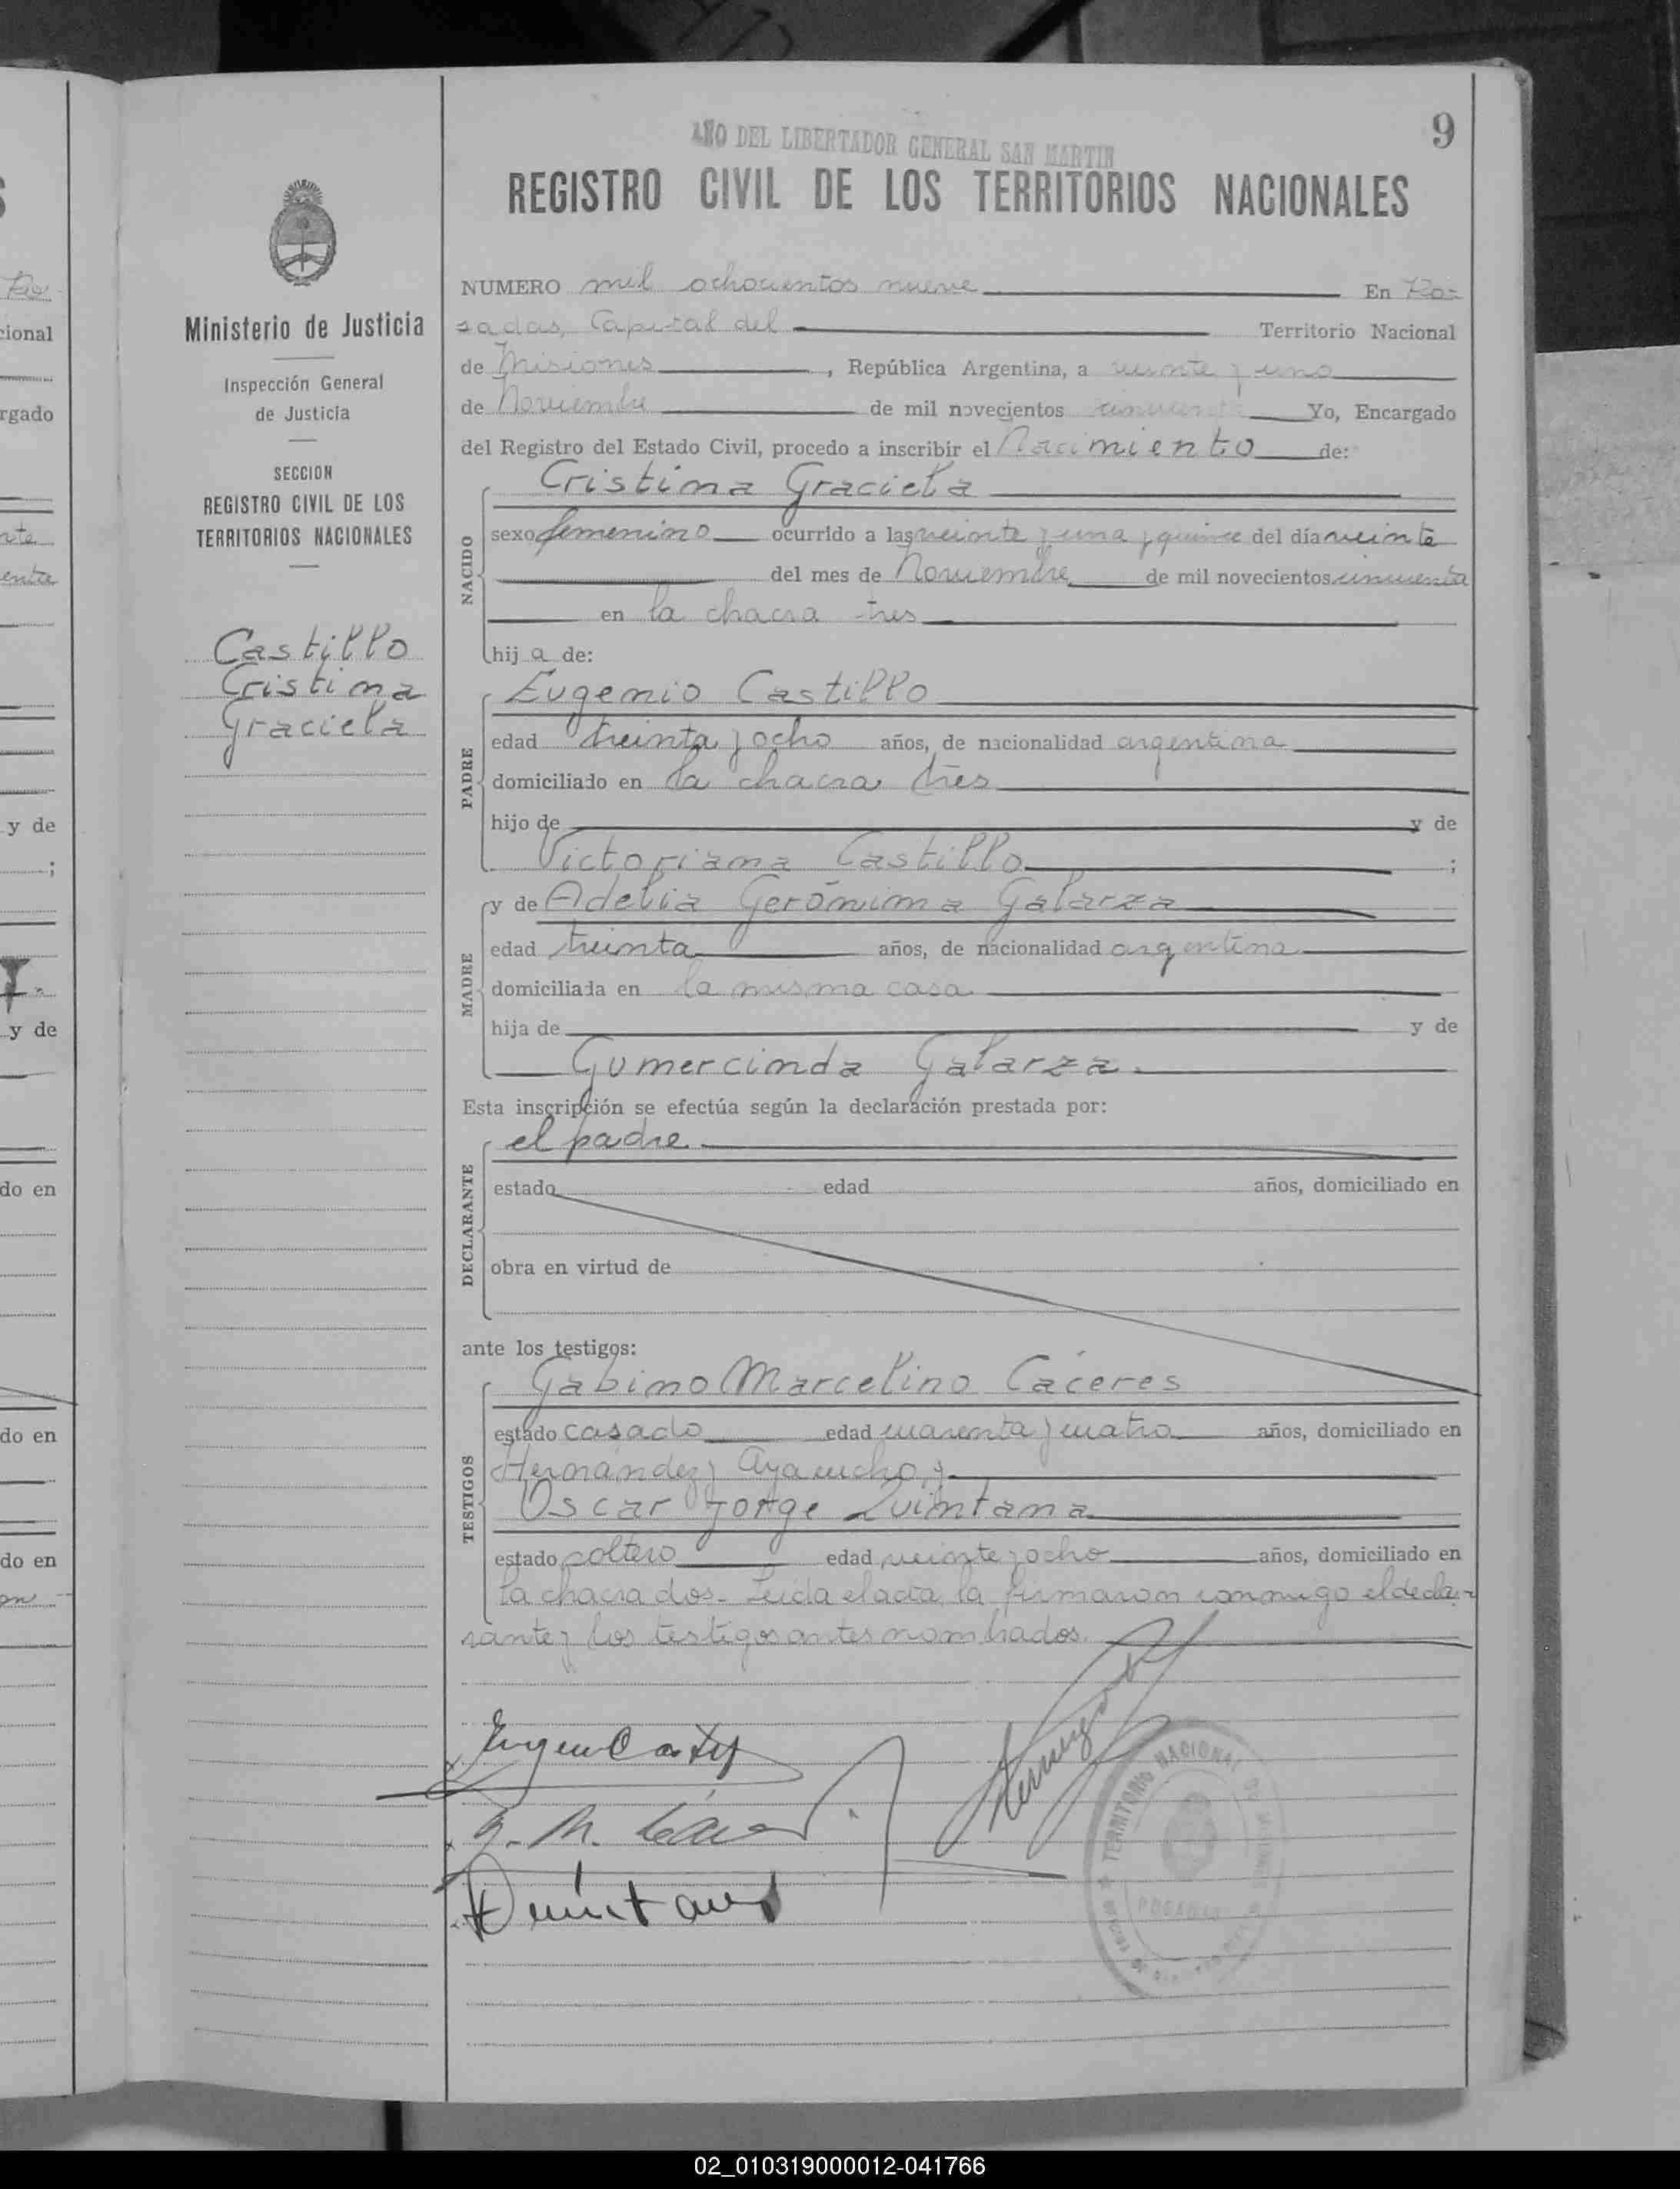 9
AÑO DEL LIBERTADOR GENERAL SAN MARTIN
REGISTRO CIVIL DE LOS TERRITORIOS NACIONALES
Ministerio de Justicia
Inspección General
de Justicia
SECCION
REGISTRO CIVIL DE LOS
TERRITORIOS NACIONALES
Castillo
Cristina
Graciela
NUMERO mil ochocientos nueve En Po-
sadas, Capital del Territorio Nacional
de Misiones, República Argentina, a veinte y uno
de Noviembre de mil novecientos cincuenta Yo, Encargado
del Registro del Estado Civil, procedo a inscribir el Nacimiento de:
NACIDO
Cristina Graciela
sexo femenino ocurrido a las veinte y una y quince del día veinte
del mes de Noviembre de mil novecientos cincuenta
en la chacra tres
hij a de:
PADRE
Eugenio Castillo
edad treinta y ocho años, de nacionalidad argentina
domiciliado en la chacra tres
hijo de y de
Victoriana Castillo ;
MADRE
y de Adelia Gerónima Galarza
edad treinta años, de nacionalidad argentina
domiciliada en la misma casa
hija de y de
Gumercinda Galarza
Esta inscripción se efectúa según la declaración prestada por:
DECLARANTE
el padre
estado edad años, domiciliado en
obra en virtud de
ante los testigos:
TESTIGOS
Gabino Marcelino Cáceres
estado casado edad cuarenta y cuatro años, domiciliado en
Hernández y Ayacucho, y
Oscar Jorge Quintana
estado soltero edad veinte y ocho años, domiciliado en
la chacra dos. Leída el acta, la firmaron conmigo el decla-
rante y los testigos antes nombrados.
G. M. Cáceres
Quintana
TERRITORIO NACIONAL DE MISIONES
POSADAS
cional
rgado
y de
;
y de
do en
do en
do en
02_010319000012-041766